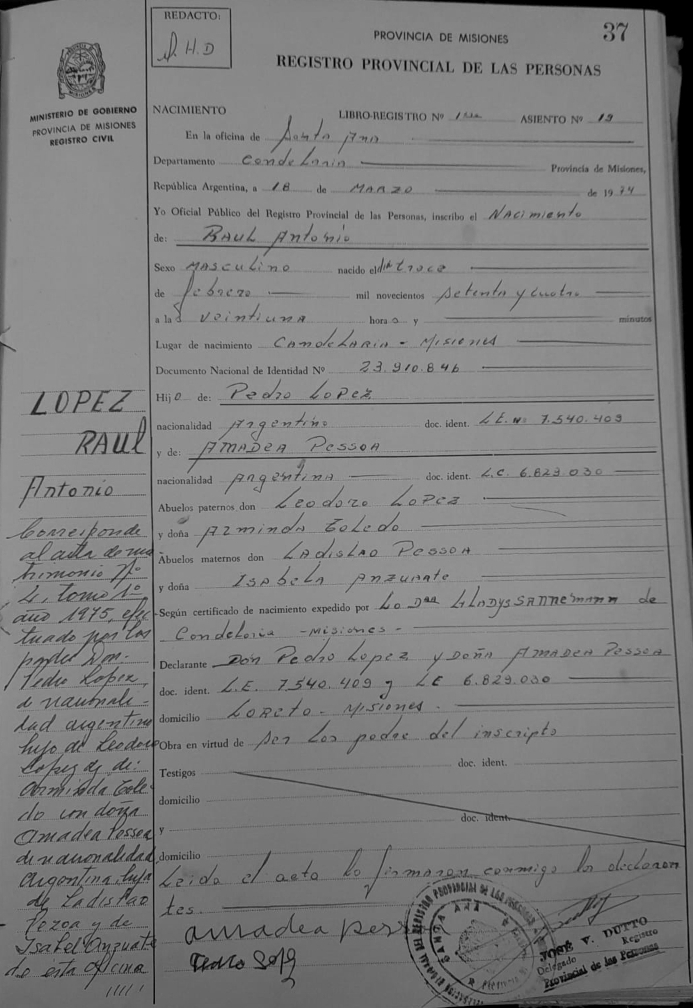 REDACTO:
P. H. D
37
PROVINCIA DE MISIONES
REGISTRO PROVINCIAL DE LAS PERSONAS
MINISTERIO DE GOBIERNO
PROVINCIA DE MISIONES
REGISTRO CIVIL
NACIMIENTO LIBRO-REGISTRO Nº 1 ASIENTO Nº 19
En la oficina de Santa Ana
Departamento Candelaria Provincia de Misiones,
República Argentina, a 18 de MARZO de 1974
Yo Oficial Público del Registro Provincial de las Personas, inscribo el Nacimiento
de: RAUL Antonio
Sexo MASCULINO nacido el día trece
de febrero mil novecientos setenta y cuatro
a la s veintiuna hora s y minutos
Lugar de nacimiento CANDELARIA - MISIONES
Documento Nacional de Identidad Nº 23.910.846
Hij o de: PEDRO LOPEZ
nacionalidad Argentina doc. ident. L.E. Nº 7.540.409
y de: AMADEA PESSOA
nacionalidad Argentina doc. ident. L.C. 6.829.030
Abuelos paternos don LEODORO LOPEZ
y doña ARMINDA TOLEDO
Abuelos maternos don LADISLAO PESSOA
y doña ISABELA ANZUATE
Según certificado de nacimiento expedido por LA Dra GLADYS SANNEMANN de
Candelaria - Misiones -
Declarante DON PEDRO LOPEZ y DOÑA AMADEA PESSOA
doc. ident. L.E. 7.540.409 y LC 6.829.030
domicilio LORETO - MISIONES -
Obra en virtud de ser los padre del inscripto
Testigos doc. ident.
domicilio
y doc. ident.
domicilio
Leida el acta la firmaron conmigo los declaran
tes.
amadea pessoa
Pedro Lopez
DIRECCION GENERAL DEL REGISTRO PROVINCIAL DE LAS PERSONAS
SANTA ANA
JOSÉ V. DUTTO
Delegado Registro
Provincial de las Personas
LOPEZ
RAUL
Antonio
Corresponde
al acta de ma
trimonio Nº
4, tomo 1º
año 1975, efec
tuado por los
padres Don.
Pedro Lopez,
de nacionali-
dad argentina
hijo de Leodoro
Lopez y de:
Arminda Tole-
do con doña
Amadea Pessoa
de nacionalidad
Argentina, hija
de Ladislao
Pezoa y de
Isabel Anzuate
do esta oficina